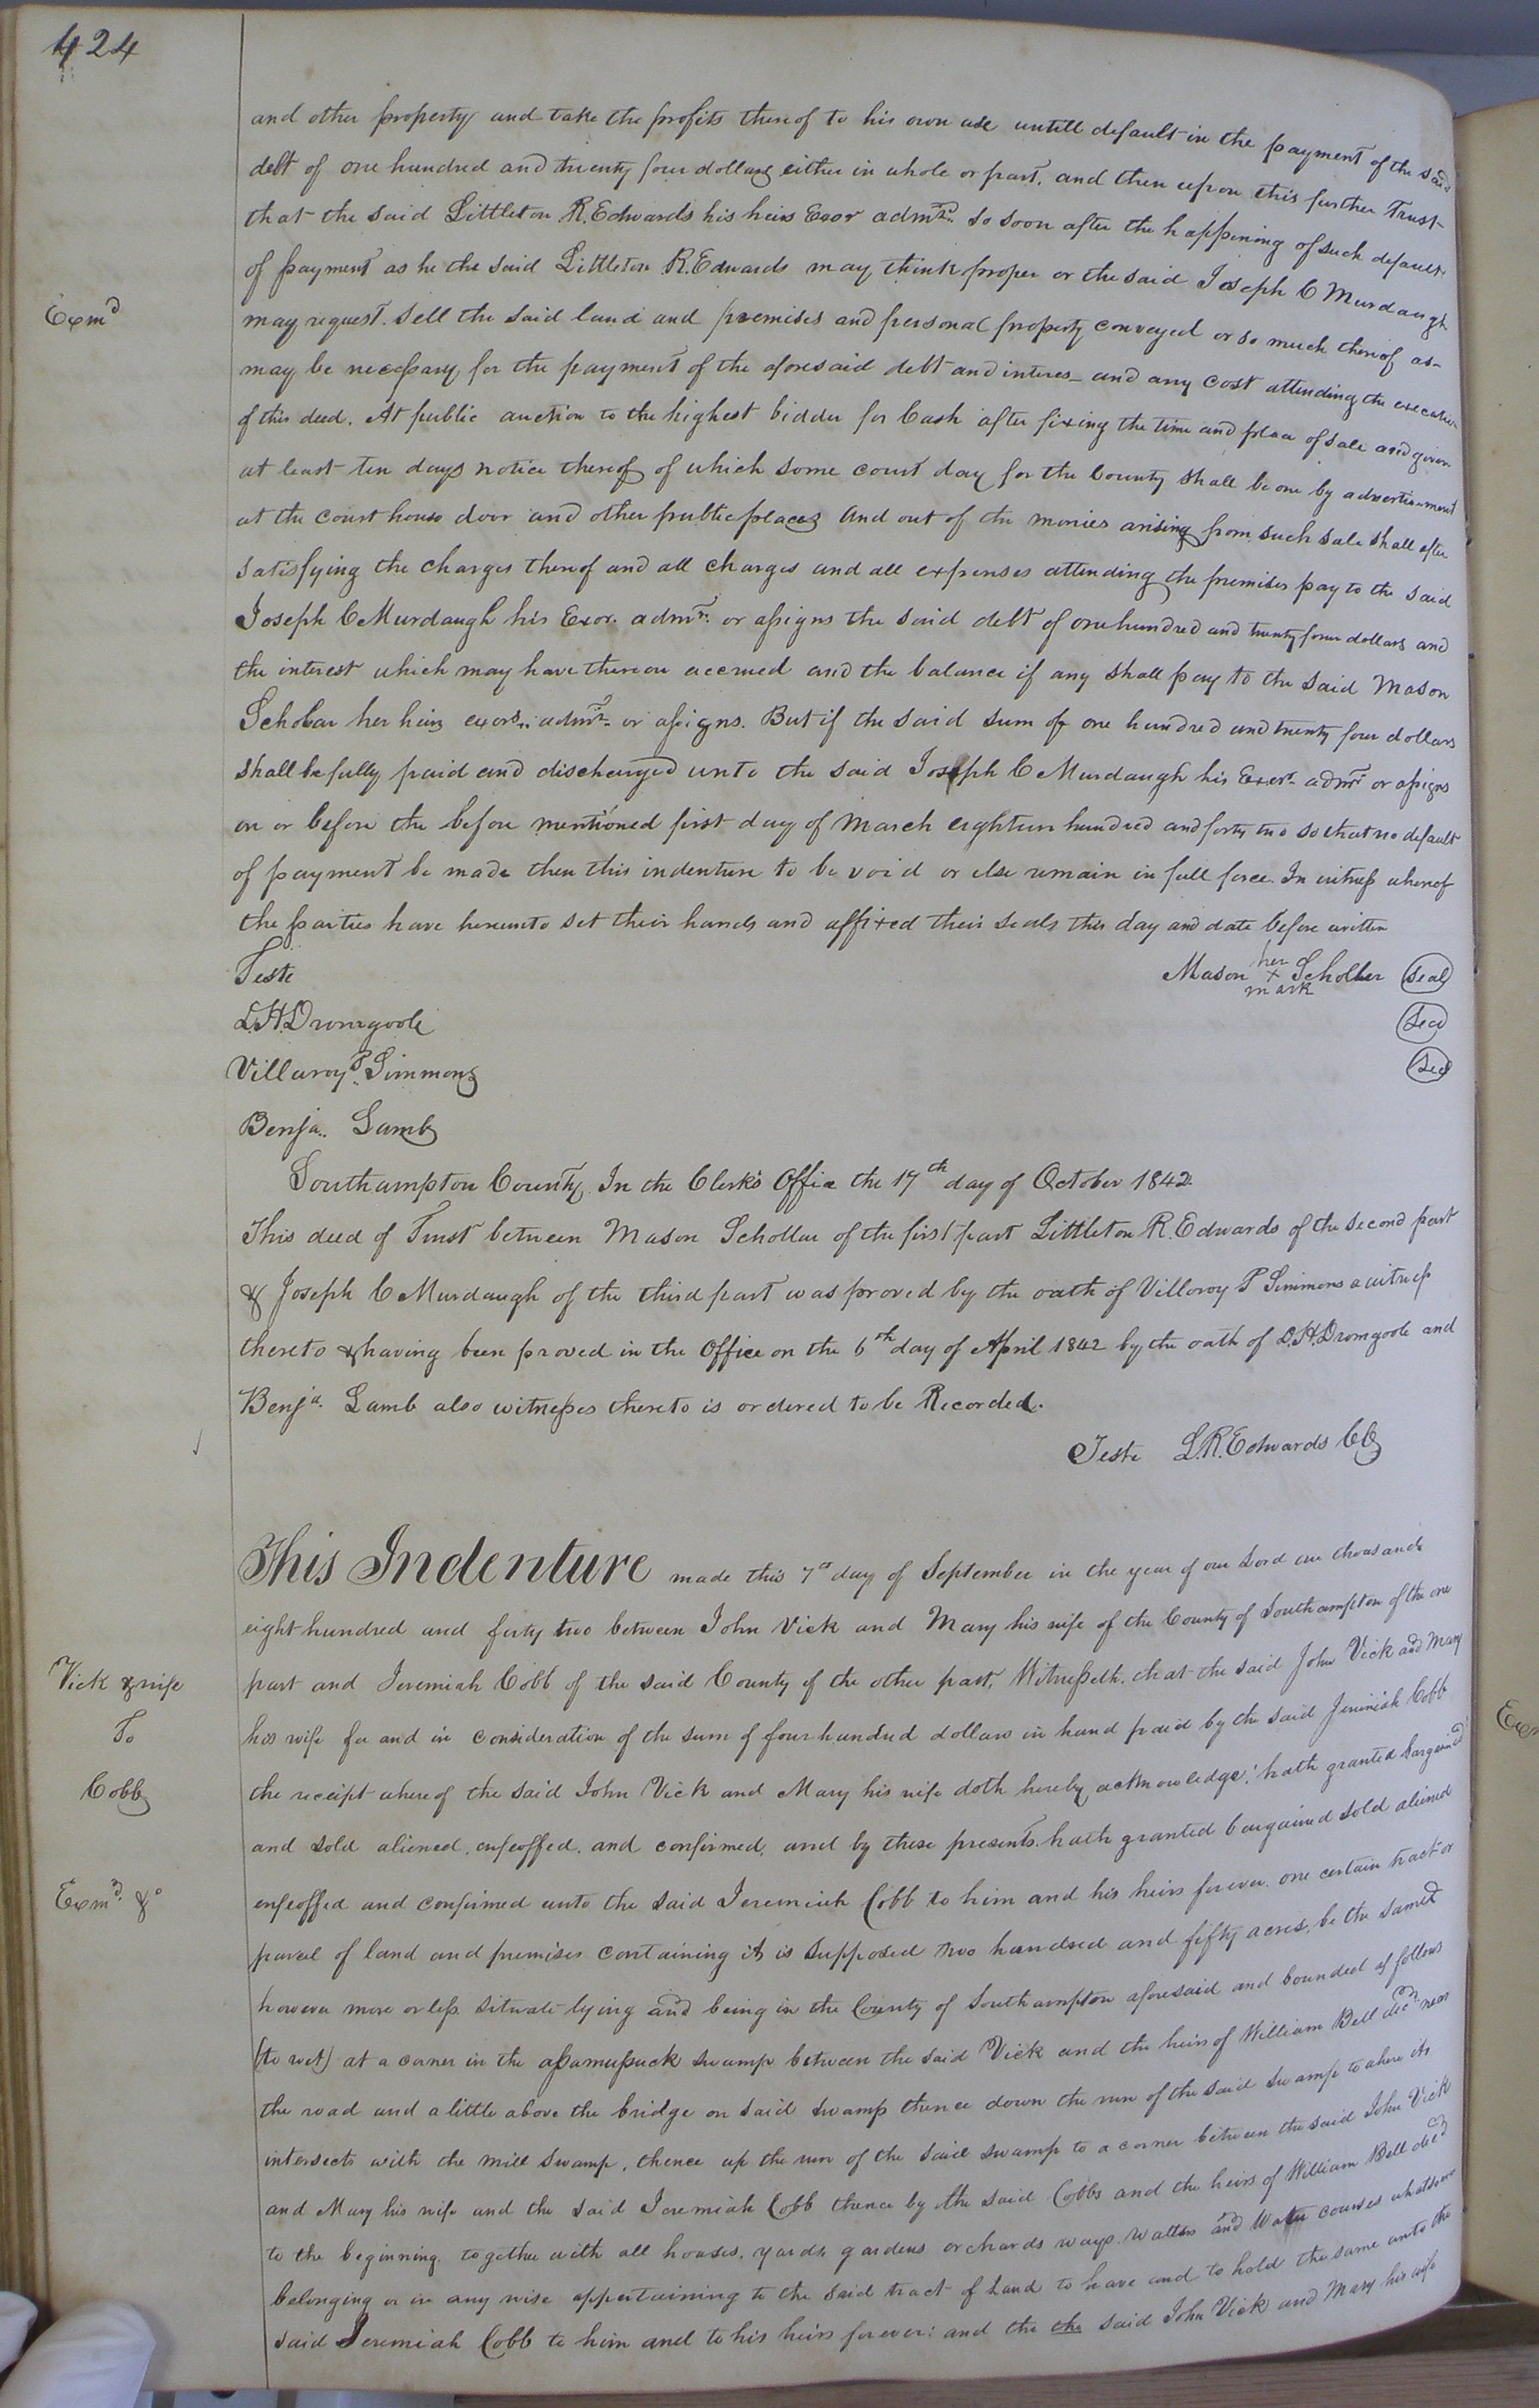 424
and other property and take the profits thereof to his own use untill default in the payment of the said
debt of one hundred and twenty four dollars either in whole or part, and then upon this further Trust
that the said Littleton R. Edwards his heirs Exor admrs. so soon after the happening of such default
of payment as he the said Littleton R. Edwards may think proper or the said Joseph C Murdaugh
Exmd
may request. sell the said land and premises and personal property conveyed or so much thereof as
may be necessary for the payment of the aforesaid debt and interes and any cost attending the execution
of this deed. At public auction to the highest bidder for Cash after fixing the time and place of sale and given
at least ten days notice thereof of which some court day for the County shall be one by advertisement
at the court house door and other public places And out of the monies arising from such sale shall after
satisfying the charges thereof and all charges and all expenses attending the premises pay to the said
Joseph C Murdaugh his Exor. admrs. or assigns the said debt of one hundred and twenty four dollars and
the interest which may have thereon accrued and the balance if any shall pay to the said Mason
Scholar her heirs exors. admrs. or assigns. But if the said sum of one hundred and twenty four dollars
shall be fully paid and discharged unto the said Joseph C Murdaugh his Exers. admrs or assigns
on or before the before mentioned first day of March eighteen hundred and forty two so that no default
of payment be made then this indenture to be void or else remain in full force. In witness whereof
the parties have hereunto set their hands and affixed their seals this day and date before written
Teste
Mason her x mark Scholler seal
D.H. Dromgoole
seal
Villaroy P. Simmons
seal
Benja. Lamb
Southampton County. In the Clerk's Office the 17th day of October 1842
This deed of Trust between Mason Schollar of the first part Littleton R. Edwards of the second part
& Joseph C Murdaugh of the third part was proved by the oath of Villoroy P Simmons a witness
thereto & having been proved in the Office on the 6th day of April 1842 by the oath of D.H. Dromgoole and
Benja. Lamb also witnesses thereto is ordered to be Recorded.
Teste L.R. Edwards CC
This Indenture made this 7th day of September in the year of our Lord one thousand
eight hundred and forty two between John Vick and Mary his wife of the County of Southampton of the one
Vick & wife
part and Jeremiah Cobb of the said County of the other part, Witnesseth. that the said John Vick and Mary
To
his wife for and in consideration of the sum of four hundred dollars in hand paid by the said Jeremiah Cobb
Cobb
the receipt whereof the said John Vick and Mary his wife doth hereby acknowledge, hath granted bargained
and sold aliened, enfeoffed, and confirmed, and by these presents. hath granted bargained sold aliened
Exmd. &c
enfeoffed and confirmed unto the said Jeremiah Cobb to him and his heirs forever. one certain tract or
parcel of land and premises containing it is supposed two hundred and fifty acres, be the same
however more or less. situate lying and being in the County of Southampton aforesaid and bounded as follows
(to wit) at a corner in the assamussuck swamp between the said Vick and the heirs of William Bell decd near
the road and a little above the bridge on said swamp thence down the run of the said swamp to where its
intersects with the mill swamp, thence up the run of the said swamp to a corner between the said John Vick
and Mary his wife and the said Jeremiah Cobb thence by the said Cobbs and the heirs of William Bell decd
to the beginning together with all houses. yards gardens orchards ways. watters and Water courses whatsoever
belonging or in any wise appertaining to the said tract of land to have and to hold the same unto the
said Jeremiah Cobb to him and to his heirs forever: and the the said John Vick and Mary his wife